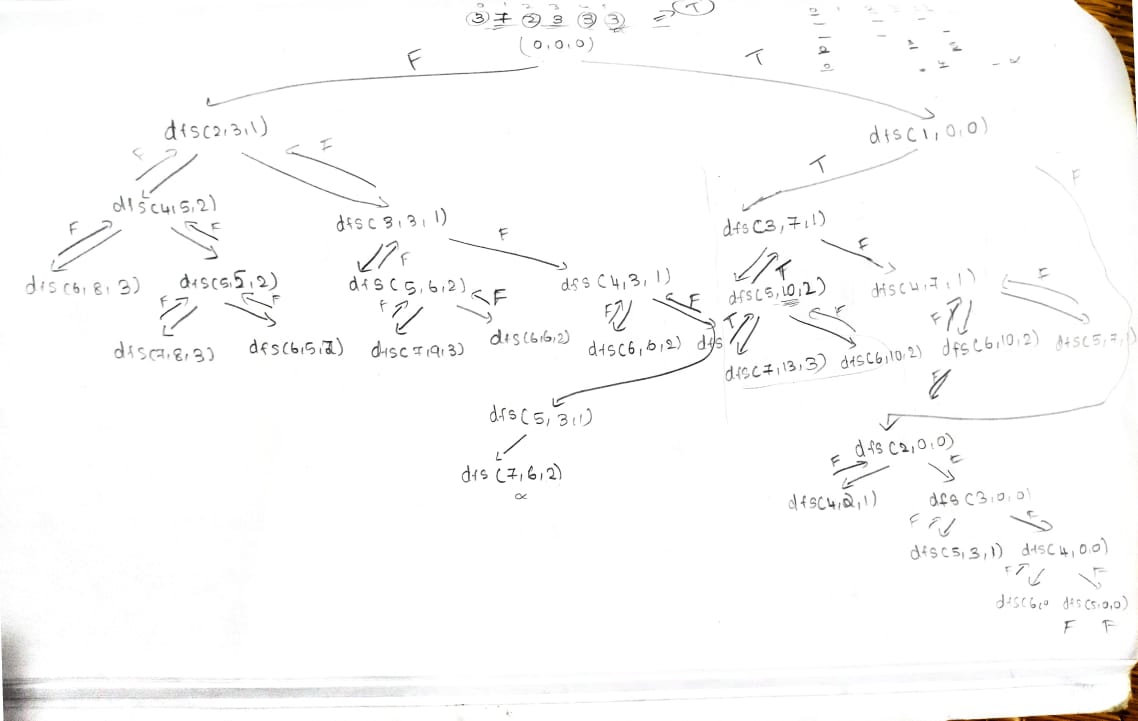 0 1 2 3 4 5
3 7 2 3 3 3 => T
(0,0,0)
F T
dfs(2,3,1) dfs(1,0,0)
F F T F
dfs(4,5,2) dfs(3,3,1) dfs(3,7,1)
F F F F T F
dfs(6,8,3) dfs(5,5,2) dfs(5,6,2) dfs(4,3,1) dfs(5,10,2) dfs(4,7,1)
F F F F F F T F F F
dfs(7,8,3) dfs(6,5,2) dfs(7,9,3) dfs(6,6,2) dfs(6,6,2) dfs dfs(7,13,3) dfs(6,10,2) dfs(6,10,2) dfs(5,7,1)
dfs(5,3,1) dfs(2,0,0)
F F
dfs(7,6,2) dfs(4,2,1) dfs(3,0,0)
F F
dfs(5,3,1) dfs(4,0,0)
F F
dfs(6,0 dfs(5,0,0)
F F